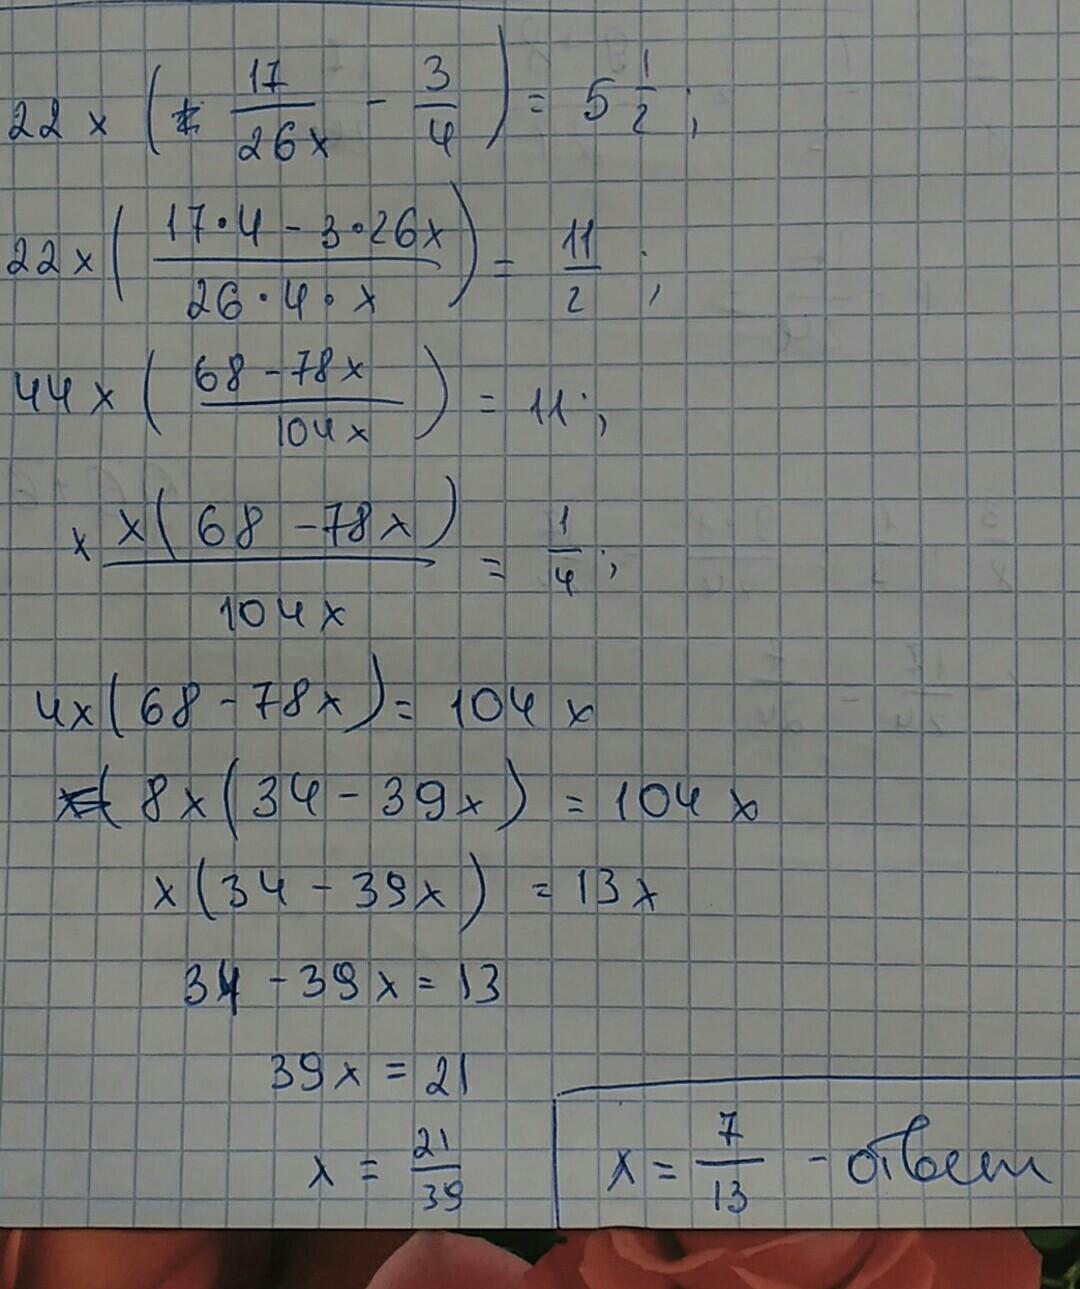 22x ( 17/26x - 3/4 ) = 5 1/2 ;
22x ( 17·4 - 3·26x / 26·4·x ) = 11/2 ;
44x ( 68 - 78x / 104x ) = 11 ;
x x( 68 - 78x ) / 104x = 1/4 ;
4x( 68 - 78x ) = 104x
8x( 34 - 39x ) = 104x
x( 34 - 39x ) = 13x
34 - 39x = 13
39x = 21
x = 21/39
x = 7/13 - ответ